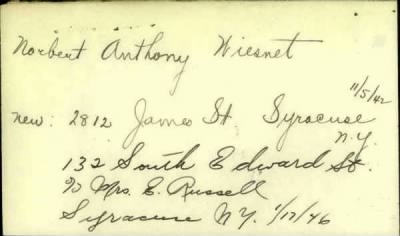 Norbert Anthony Wiesnet
11/5/42
new: 2812 James St. Syracuse
N.Y.
132 South Edward St.
% Mrs. E. Russell
Syracuse N.Y. 1/17/46